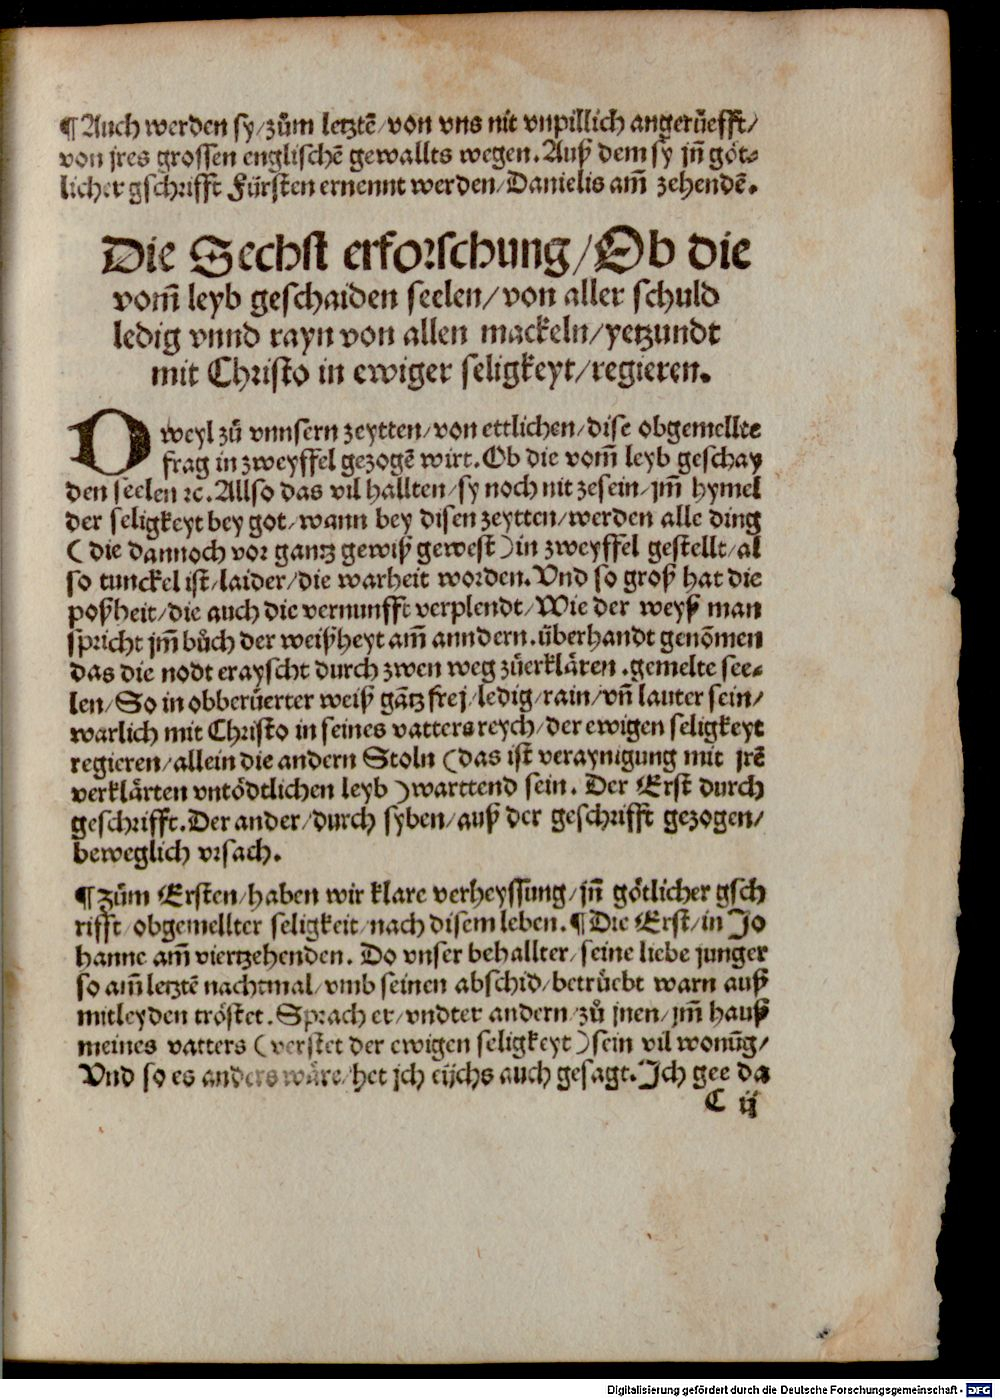 ¶ Auch werden sy/zům letztē/von vns nit vnpillich angerůefft/
von jres grossen englischē gewallts wegen. Auß dem sy jn̄ göt⸗
licher gschrifft Fürsten ernennt werden/Danielis am̄ zehendē.
Die Sechst erforschung/Ob die
vom̄ leyb geschaiden seelen/von aller schuld
ledig vnnd rayn von allen mackeln/yetzundt
mit Christo in ewiger seligkeyt/regieren.
Dweyl zů vnnsern zeytten/von ettlichen/dise obgemellte
frag in zweyffel gezogē wirt. Ob die vom̄ leyb geschay
den seelen ꝛc. Allso das vil hallten/sy noch nit zesein/jm̄ hymel
der seligkeyt bey got/wann bey disen zeytten/werden alle ding
( die dannoch vor gantz gewiß gewest ) in zweyffel gestellt/al
so tunckel ist/laider/die warheit worden. Vnd so groß hat die
poßheit/die auch die vernunfft verplendt/Wie der weyß man
spricht jm̄ bůch der weißheyt am̄ anndern. überhandt genōmen
das die nodt erayscht durch zwen weg zůerklären . gemelte see⸗
len/So in obberůerter weiß gātz frej/ledig/rain/vn̄ lauter sein/
warlich mit Christo in seines vatters reych/der ewigen seligkeyt
regieren/allein die andern Stoln (das ist veraynigung mit jrē
verklärten vntödtlichen leyb ) warttend sein. Der Erst durch
geschrifft. Der ander/durch syben/auß der geschrifft gezogen/
beweglich vrsach.
¶ Zům Ersten/haben wir klare verheyssung/jn̄ götlicher gsch
rifft/obgemellter seligkeit/nach disem leben. ¶ Die Erst/in Jo
hanne am̄ viertzehenden. Do vnser behallter/seine liebe junger
so am̄ letztē nachtmal/vmb seinen abschid/betrůebt warn auß
mitleyden tröstet. Sprach er/vndter andern/zů jnen/jm̄ hauß
meines vatters (verstet der ewigen seligkeyt ) sein vil wonūg/
Vnd so es anders wäre/het jch eüchs auch gesagt. Ich gee da
C ij
Digitalisierung gefördert durch die Deutsche Forschungsgemeinschaft - DFG